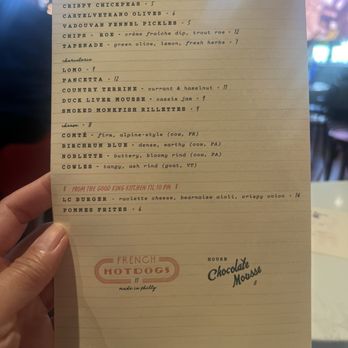 CRISPY CHICKPEAS - 5
CASTELVETRANO OLIVES - 6
VADOUVAN FENNEL PICKLES - 5
CHIPS + ROE - crème fraîche dip, trout roe - 12
TAPENADE - green olive, lemon, fresh herbs - 7
charcuterie
LOMO - 9
PANCETTA - 12
COUNTRY TERRINE - currant & hazelnut - 11
DUCK LIVER MOUSSE - cassis jam - 9
SMOKED MONKFISH RILLETTES - 9
cheese - 8
COMTÉ - firm, alpine-style (cow, FR)
BIRCHRUN BLUE - dense, earthy (cow, PA)
NOBLETTE - buttery, bloomy rind (cow, PA)
COWLES - tangy, ash rind (goat, VT)
FROM THE GOOD KING KITCHEN TIL 10 PM
LC BURGER - raclette cheese, bearnaise aioli, crispy onion - 16
POMMES FRITES - 6
FRENCH
HOTDOGS
11
made in philly
HOUSE
Chocolate
Mousse
8